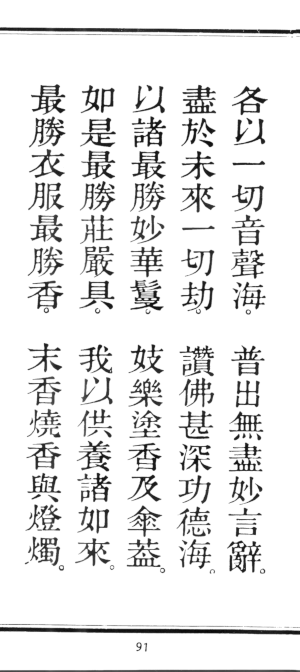 各以一切音聲海。普出無盡妙言辭。
盡於未來一切劫。讚佛甚深功德海。
以諸最勝妙華鬘。妓樂塗香及傘葢。
如是最勝莊嚴具。我以供養諸如來。
最勝衣服最勝香。末香燒香與燈燭。
91